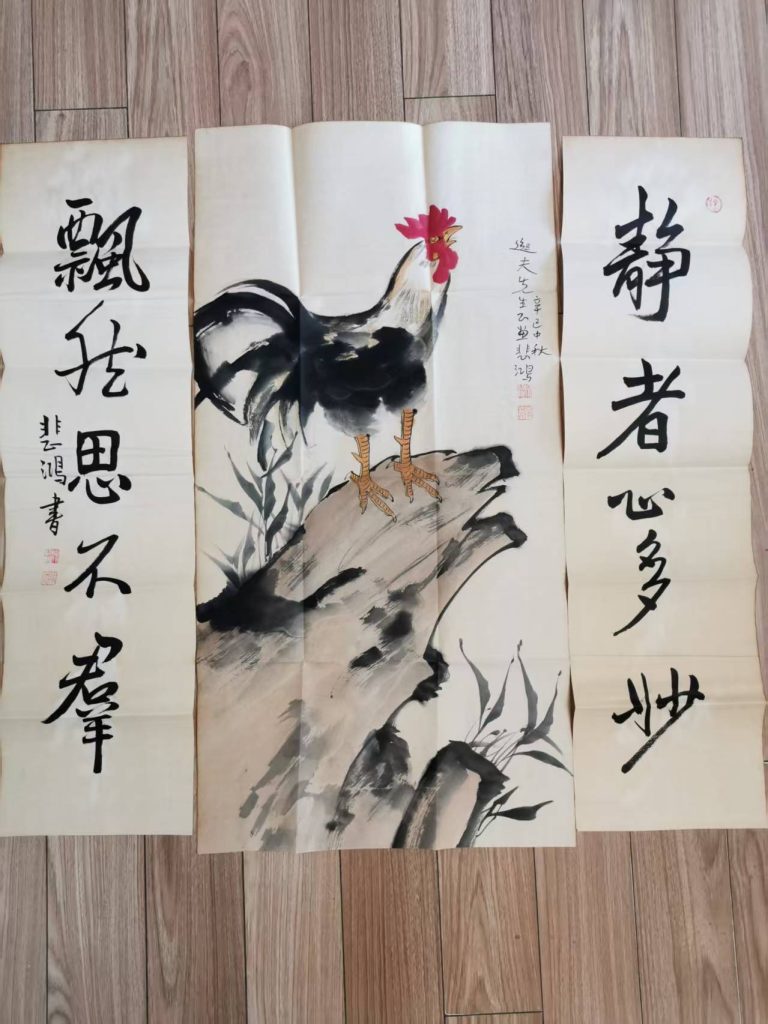 靜者心多妙
辛巳中秋
夫先生悲鴻
飄然思不羣
悲鴻書